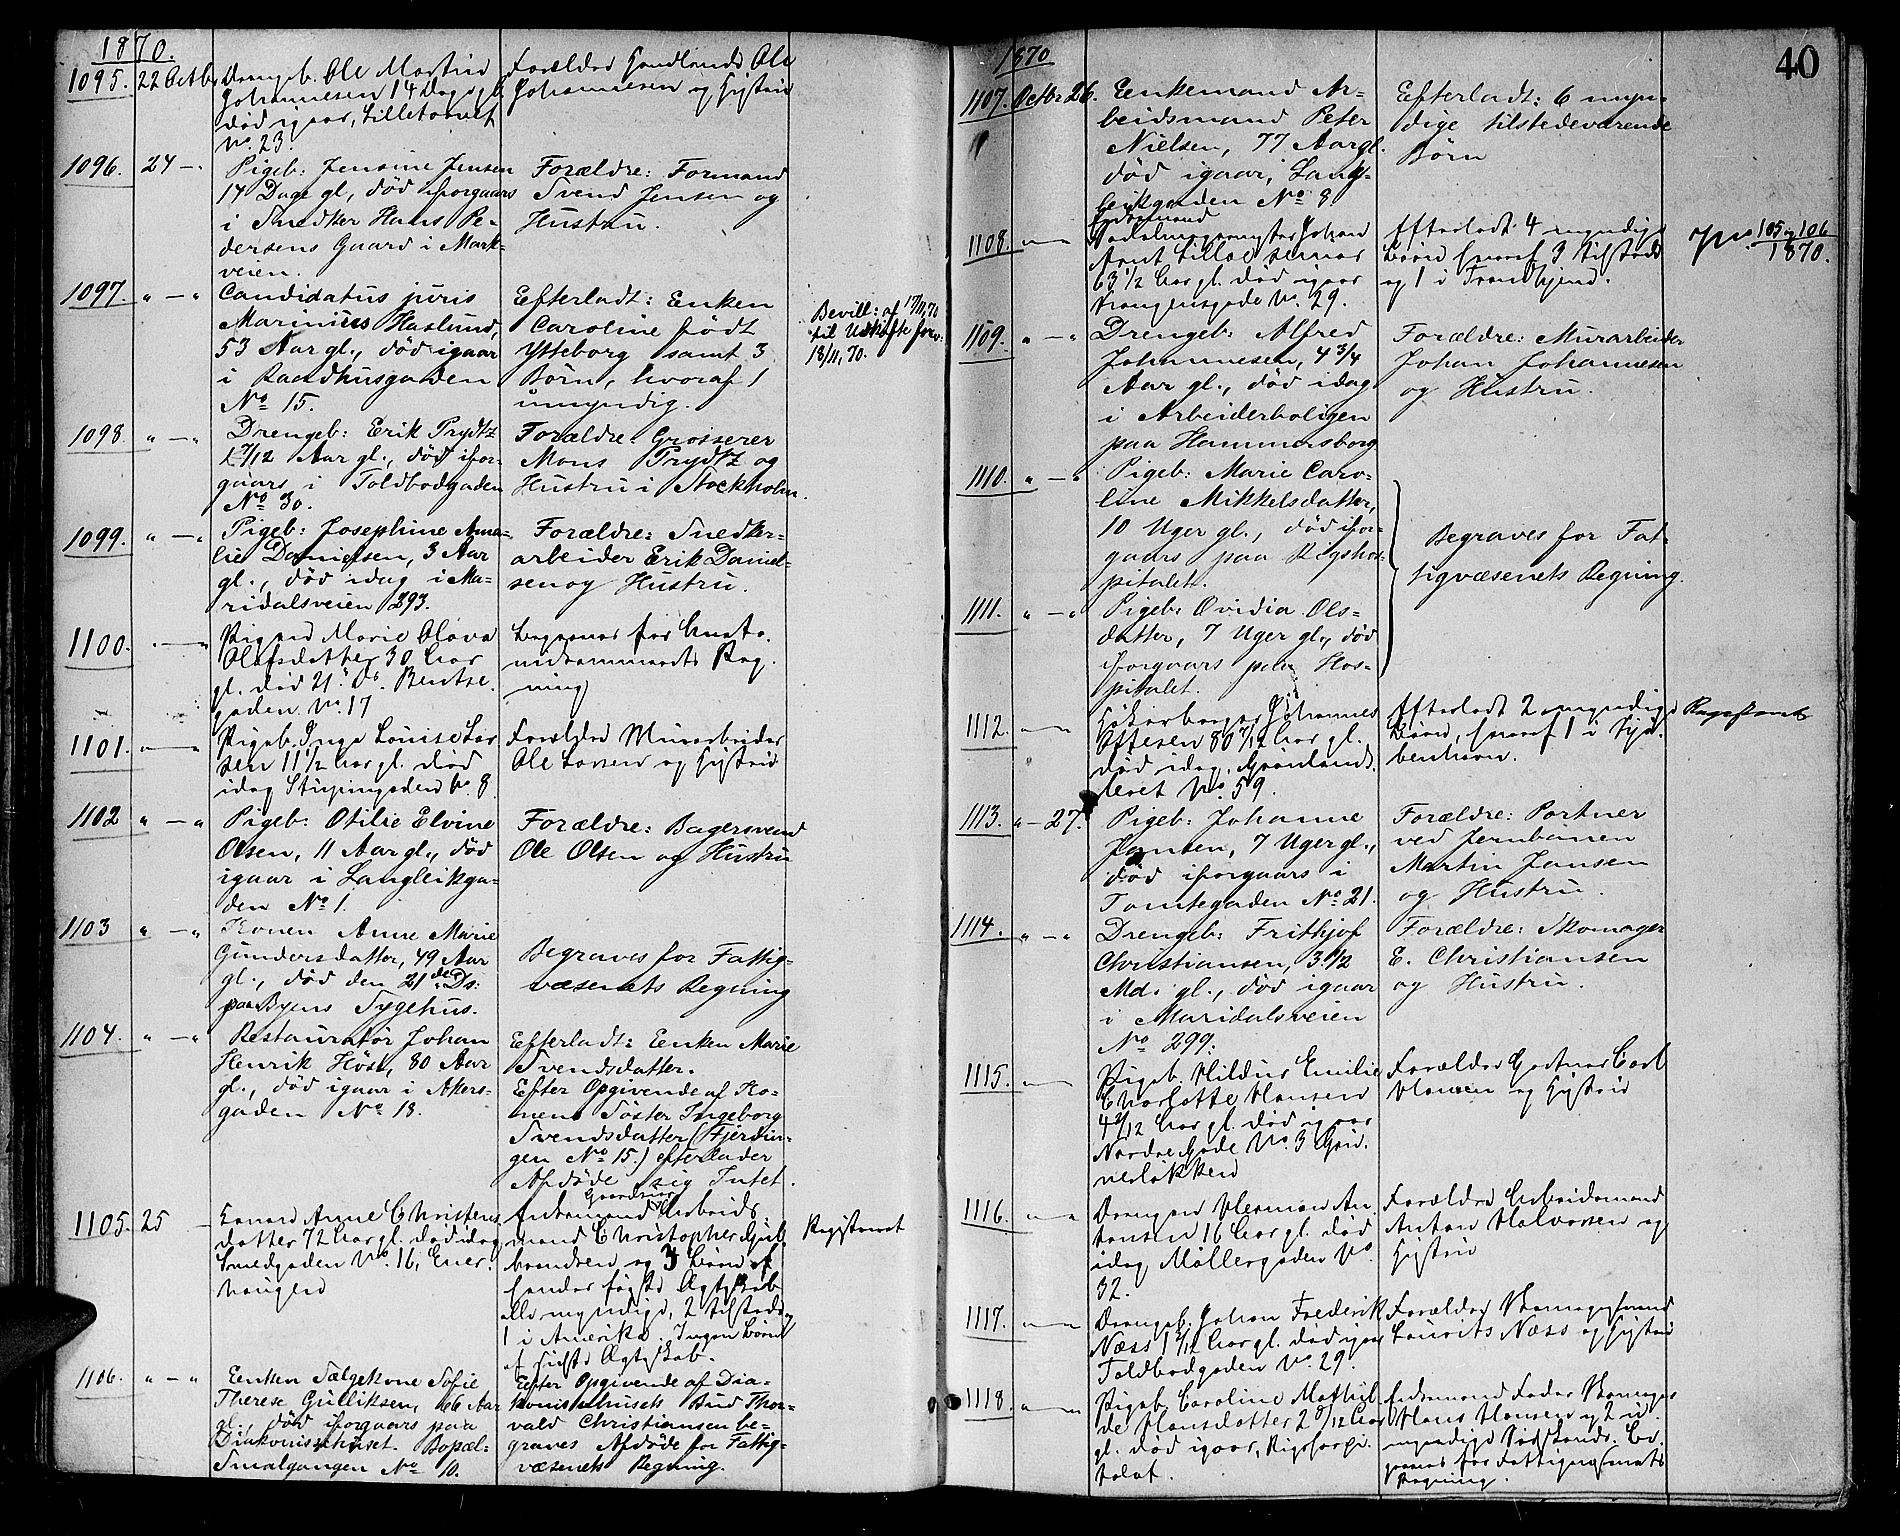 1870.
1095. 22 Octbr
Drengeb. Ole Martin
Johannesen 14 Dage gl.
død igaar, Lilletorvet
No. 23.
Forældre
Ole
Johannesen og Hustru
1096. 24 -
Pigeb: Jensine Jensen
14 Dage gl, død iforgaars
i Snedker Hans Pe-
dersens Gaard i Mark-
veien.
Forældre: Formand
Svend Jensen og
Hustru.
1097. " - "
Candidatus juris
Marinius Haslund,
53 Aar gl., død igaar
i Raadhusgaden
No 15.
Efterladt: Enken
Caroline født
Ytteborg samt 3
Børn, hvoraf 1
umyndig.
Bevill: af 17/11,70
til Uskifte forev:
18/11,70.
1098. " - "
Drengeb: Erik Prydtz
7/12 Aar gl., død ifor-
gaars i Toldbodgaden
No 30.
Forældre: Grosserer
Mons Prydtz og
Hustru i Stockholm.
1099. " - "
Pigeb: Josephine Ama-
lie Danielsen, 3 Aar
gl., død idag i Ma-
ridalsveien 293.
Forældre: Snedker-
arbeider Erik Daniel-
sen og Hustru.
1100. " - "
Pigen Marie Olava
Olafsdatter 30 Aar
gl. død 21de Ds. Bentse-
gaden No. 17
Begraves for
Reg-
ning
1101. " - "
Pigeb. Inga Louise Lar
sen 11 1/2 Aar gl. død
idag Stupingaden No. 8
Forældre Murarbeider
Ole Larsen og Hustru
1102 " - "
Pigeb: Otilie Elvine
Olsen, 11 Aar gl., død
igaar i Langleikga-
den No 1.
Forældre: Bagersvend
Ole Olsen og Hustru
1103 " - "
Konen Anne Marie
Gundersdatter, 49 Aar
gl., død den 21de Ds:
paa Byens Sygehus.
Begraves for Fattig-
væsenets Regning
1104. " - "
Restauratør Johan
Henrik Höst, 80 Aar
gl., død igaar i Akers-
gaden No 18.
Efterladt: Enken Marie
Svendsdatter.
Efter Opgivende af Ko-
nens Söster Ingeborg
Svendsdatter (Fjerdin-
gen No 15.) efterlader
Afdöde sig Intet.
1105. 25 -
Konen Anne Christens
datter 72 Aar gl. død idag
Smedgaden No. 16, Ener-
haugen
Enkemand Arbeids
mand Christopher Gul
brandsen og 3 Børn af
hendes første Ægteskab
alle myndige, 2 tilstede og
1 i Amerika. Ingen Børn
af sidste Ægteskab.
Registreret
1106. " - "
Enken Sælgekone Sofie
Therese Gulliksen, 66 Aar
gl., död iforgaars paa
Diakonissehuset. Bopæl:
Smalgangen No 10.
Efter Opgivende af Dia-
konissehusets Bud Thor-
vald Christiansen be-
graves Afdöde for Fattig-
væsenets Regning.
1870
40
1107. Octbr 26.
Enkemand Ar-
beidsmand Peter
Nielsen, 77 Aar gl.
död igaar, Lang-
leikgaden No 8
Efterladt: 6 myn-
dige tilstedeværende
Børn
1108. " - "
Sadelmagermester Johan
Arnt
63 1/2 Aar gl. død igaar
Vognmandsgade No. 29.
Efterladt 4 myndige
Børn hvoraf 3 tilstede
og 1 i Trondhjem.
105 og 106
1870.
1109. " - "
Drengeb: Alfred
Johannesen, 4 3/4
Aar gl., död idag
i Arbeiderboligen
paa Hammersborg
Forældre: Murarbeider
Johan Johannesen
og Hustru.
1110. " - "
Pigeb: Marie Caro-
line Mikkelsdatter,
10 Uger gl., död ifor-
gaars paa Rigshos-
pitalet.
Begraves for Fat-
tigvæsenets Regning.
1111. " - "
Pigeb: Ovidia Ols-
datter, 7 Uger gl., död
iforgaars paa Hos-
pitalet.
1112. " - "
Johannes
Ottesen 80 7/12 Aar gl.
død idag, Grønlands
leret No. 59.
Efterladt 2 myndige
Børn, hvoraf 1 i Kjø-
benhavn.
Registreret
1113. " - 27.
Pigeb: Johanne
Jansen, 7 Uger gl.,
död iforgaars i
Tomtegaden No 21.
Forældre: Portner
ved Jernbanen
Martin Jansen
og Hustru.
1114. " - "
Drengeb: Frithjof
Christiansen, 3 1/2
Md. gl., död igaar
i Maridalsveien
No 299.
Forældre: Skomager
E. Christiansen
og Hustru.
1115. " - "
Pigeb. Hildur Emilie
Charlotte Hansen
Aar gl. død igaar
Nordre Gade No. 3 Grü-
nerløkken
Forældre Gartner Carl
Hansen og Hustru
1116. " - "
Drengen Herman An
tonsen 16 Aar gl. død
idag Møllergaden No
32.
Forældre Arbeidsmand
Anton Halvorsen og
Hustru
1117. " - "
Drengeb. Johan Frederik
Næss
Aar gl. død igaar
Toldbodgaden No. 29.
Forældre Skomagersvend
Laurits Næss og Hustru
1118. " - "
Pigeb. Caroline Mathil
de Hansdatter 2 8/12 Aar
gl. død igaar, Rigshospi-
talet.
Enkemand Fader Skomager
Hans Hansen og 2 u-
myndige Sødskende. Be-
graves for Fattigvæsenets
Regning.